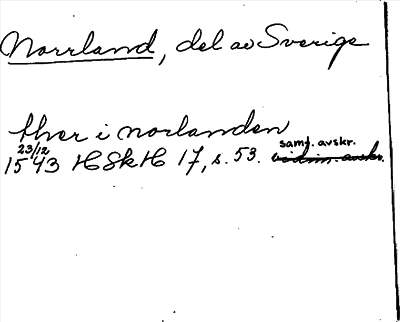 Norrland, del av Sverige
ther i norlanden
23/12
1543 HSkH 17, s. 53. samt. avskr.
vidim. avskr.